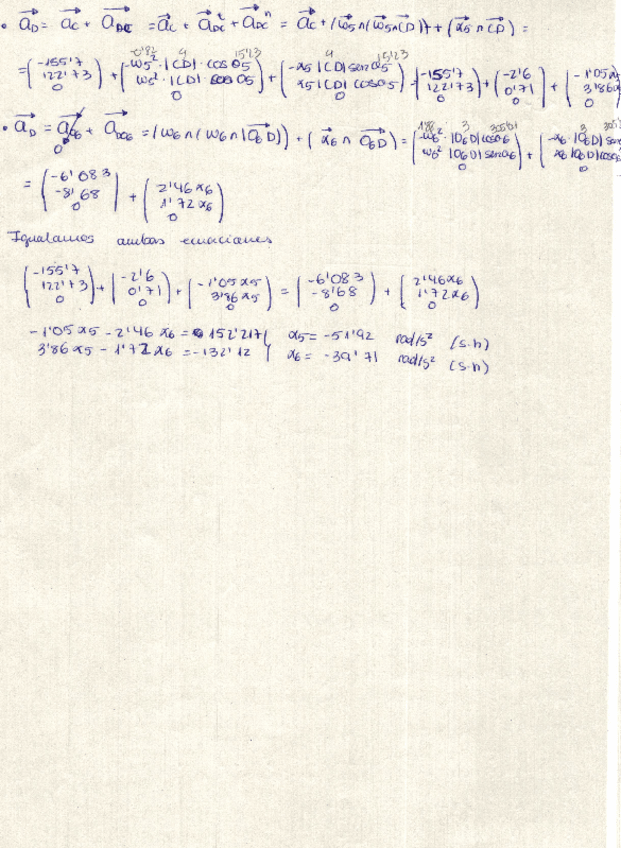 • aD = aC + aDC = aC + aDC^t + aDC^n = aC + (ω5 ∧ (ω5 ∧ CD)) + (α5 ∧ CD) =
= (-155'7 122'73 0) + (-ω5²·|CD|·cos θ5 ω5²·|CD| θ5 0) + (-α5 |CD| sen θ5 α5 |CD| cos θ5 0) (-155'7 122'73 0) + (-2'6 0'71 0) + (-1'05α5 3'86α 0
• aD = + aDO6 = (ω6 ∧ (ω6 ∧ |O6D)) + (α6 ∧ O6D) = (ω6²·|O6D| cos θ6 ω6² |O6D| sen θ6 0) + (-α6·|O6D| sen α6 |O6D| cos θ6 0
= (-6'083 -8'68 0) + (2'46 α6 1'72 α6 0)
Igualamos ambas ecuaciones
(-155'7 122'73 0) + (-2'6 0'71 0) + (-1'05 α5 3'86 α5 0) = (-6'083 -8'68 0) + (2'46α6 1'72α6 0)
-1'05 α5 - 2'46 α6 = 152'217 α5 = -51'92 rad/s² (s.h)
3'86 α5 - 1'72 α6 = -132'12 α6 = -39'71 rad/s² (s.h)